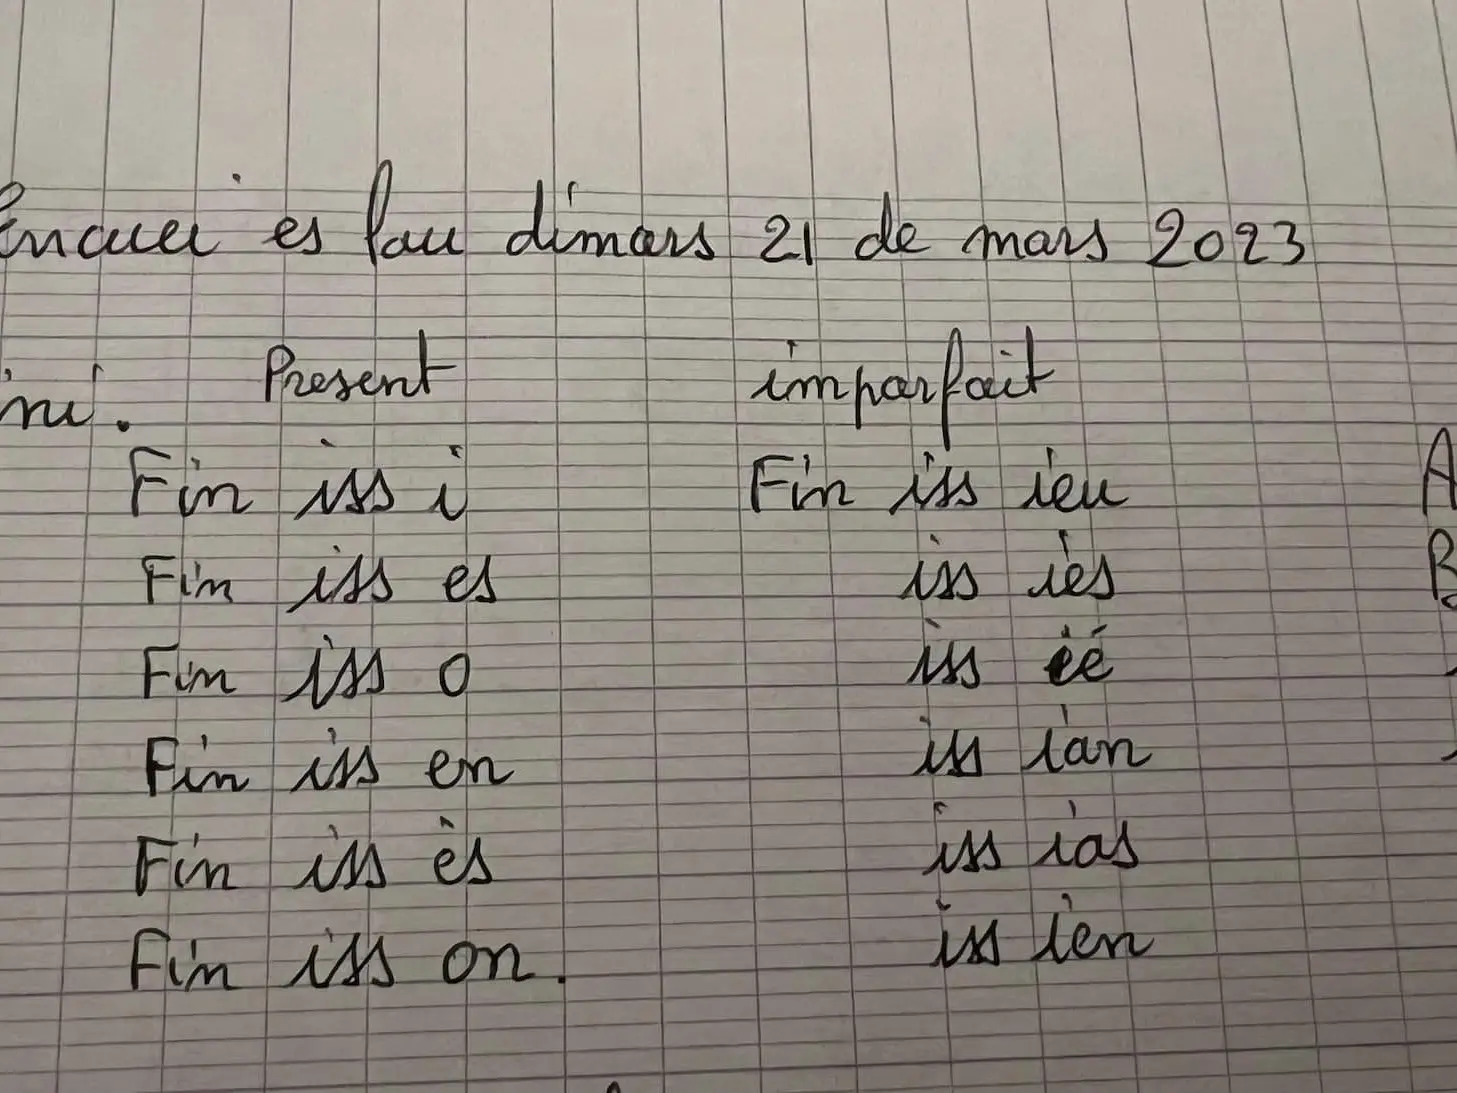 Encuei es lou dimars 21 de mars 2023
ni. Present imparfait
Fin iss i Fin iss ieu
Fin iss es iss iès
Fin iss o iss ié
Fin iss en iss ian
Fin iss ès iss ias
Fin iss on. iss ien
A
B